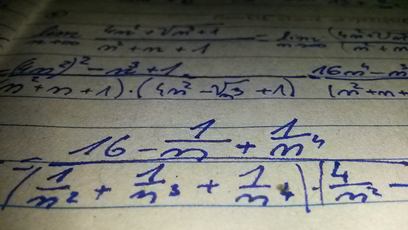 lim 4n² + √n³ + 1 / n² + n + 1 = lim (4n² + √n³
(4n²)² - n³ + 1 / n² + n + 1) · (4n² - √n³ + 1) 16n⁴ - n³ / (n² + n +
= 16 - 1/n + 1/n⁴ / (1/n² + 1/n³ + 1/n⁴) · (4/n² -